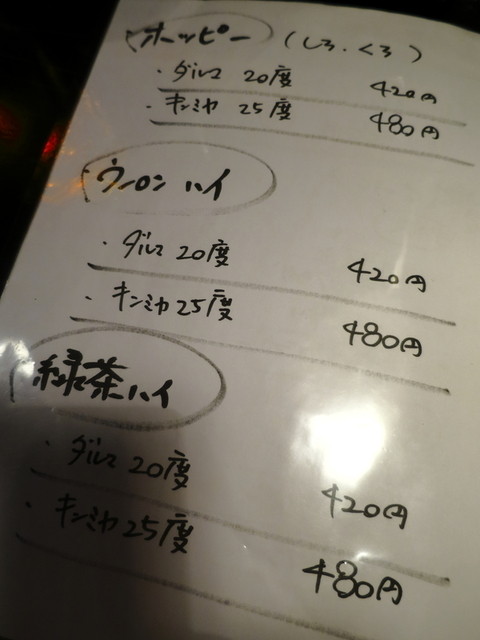 ホッピー (しろ・くろ)
・ダルマ 20度 420円
・キンミヤ 25度 480円
ウーロンハイ
・ダルマ 20度 420円
・キンミヤ 25度 480円
緑茶ハイ
・ダルマ 20度 420円
・キンミヤ 25度 480円